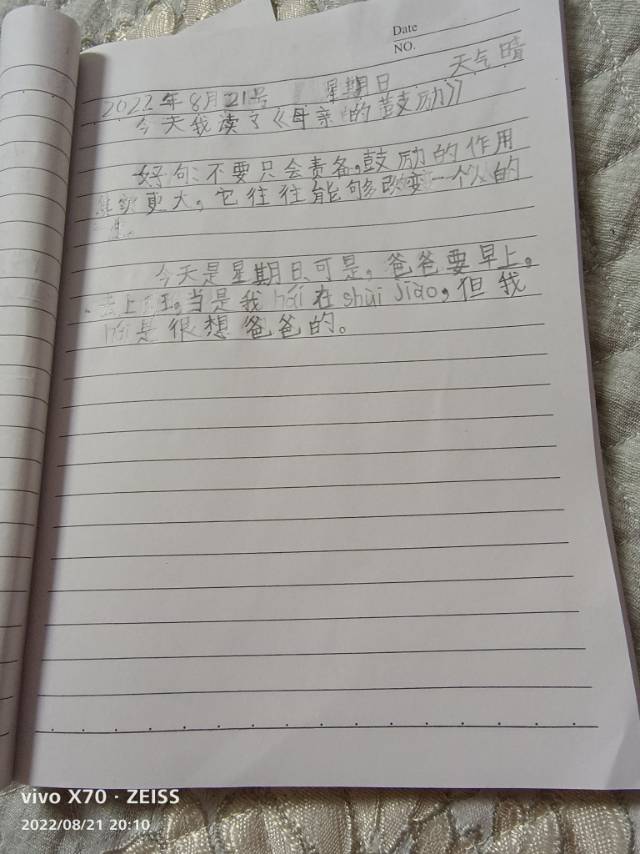 Date
NO.
天气 晴
2022年8月21号 星期日
今天我读了《母亲的鼓励》
好句:不要只会责备,鼓励的作用
更大,它往往能够改变一个人的
今天是星期日可是,爸爸要早上。
去上班。当是我hái在shuì Jiào,但我
hái是很想爸爸的。
vivo X70 · ZEISS
2022/08/21 20:10